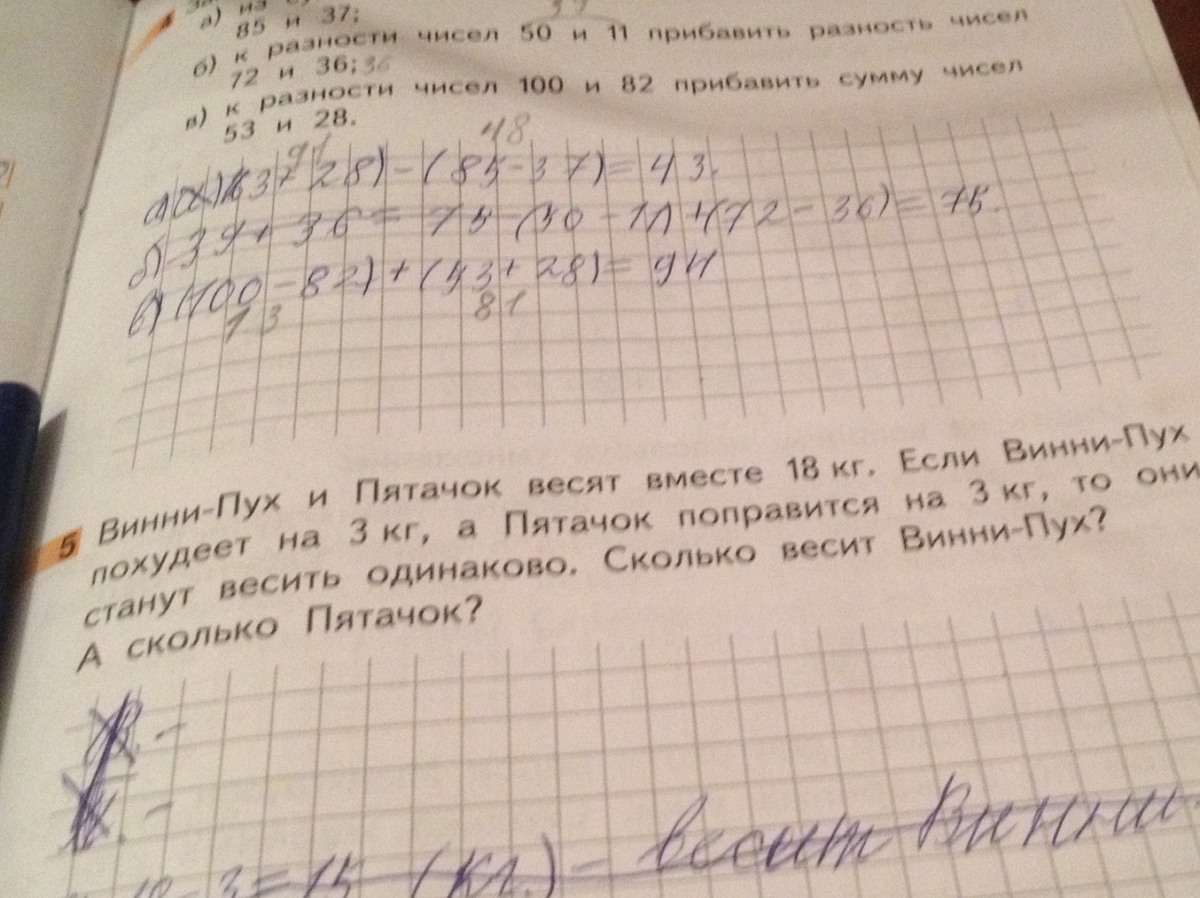 а) из
85 и 37;
б) к разности чисел 50 и 11 прибавить разность чисел
72 и 36; 36
в) к разности чисел 100 и 82 прибавить сумму чисел
53 и 28.
91 48
а) (63+28)-(85-37)=43.
б) 39+36=75 (50-11)+(72-36)=75.
в) (100-82)+(53+28)=94
13 81
5 Винни-Пух и Пятачок весят вместе 18 кг. Если Винни-Пух
похудеет на 3 кг, а Пятачок поправится на 3 кг, то они
станут весить одинаково. Сколько весит Винни-Пух?
А сколько Пятачок?
18-3=15 (кг.) - весит Винни